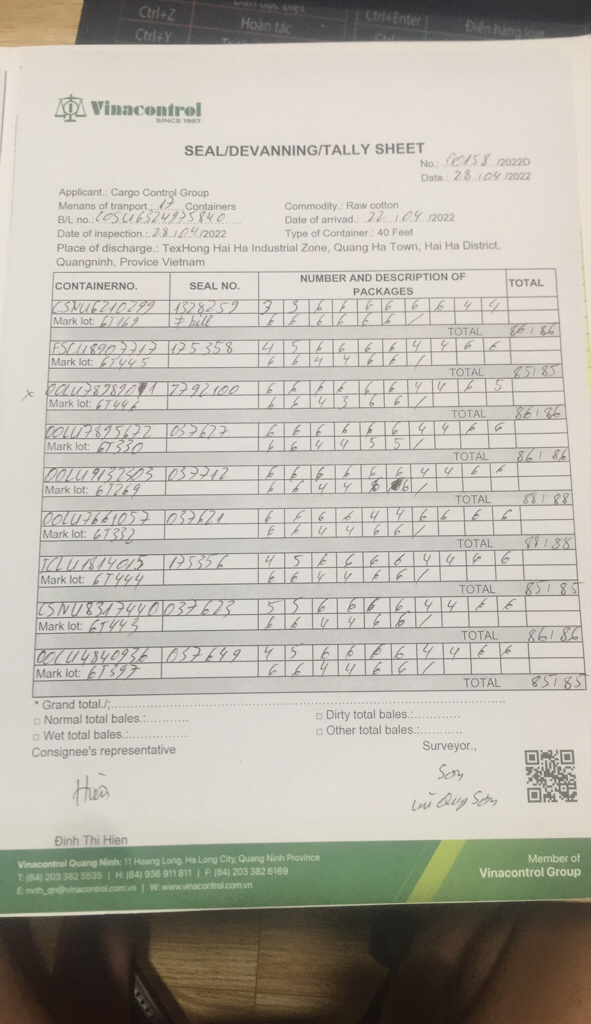 Ctrl+Z
Hoàn tác
Ctrl+Enter
Điền hàng loạt
Ctrl+Y
Vinacontrol
SINCE 1957
SEAL/DEVANNING/TALLY SHEET
No.: 00158 /2022D
Date.: 28 / 04 /2022
Applicant.: Cargo Control Group
Menans of tranport.: 17 Containers
Commodity.: Raw cotton
B/L no.: COSU6324975840
Date of arrivad.: 22 / 04 /2022
Date of inspection.: 28 / 04 /2022
Type of Container.: 40 Feet
Place of discharge.: TexHong Hai Ha Industrial Zone, Quang Ha Town, Hai Ha District,
Quangninh, Provice Vietnam
CONTAINERNO. SEAL NO. NUMBER AND DESCRIPTION OF PACKAGES TOTAL
CSNU6210299 1328259 3 3 6 6 6 6 6 6 4 4
Mark lot: 6T169 ≠ bill 6 6 6 6 6 6 /
TOTAL 86 / 86
FSCU8907717 175358 4 5 6 6 6 6 4 4 6 6
Mark lot: 6T445 6 6 4 4 6 6 /
TOTAL 85 / 85
x 7792100 6 6 6 6 6 6 4 4 6 5
Mark lot: 6T446 6 6 4 3 6 6 /
TOTAL 86 / 86
OOLU7895672 037627 6 6 6 6 6 6 4 4 6 6
Mark lot: 6T330 6 6 4 4 5 5 /
TOTAL 86 / 86
OOLU9132503 037712 6 6 6 6 6 6 4 4 6 6
Mark lot: 6T269 6 6 4 4 6 6 /
TOTAL 88 / 88
OOLU7661057 037621 6 6 6 6 4 4 6 6 6 6
Mark lot: 6T332 6 6 4 4 6 6 /
TOTAL 88 / 88
TCLU1814015 175356 4 5 6 6 6 6 4 4 6 6
Mark lot: 6T444 6 6 4 4 6 6 /
TOTAL 85 / 85
CSNU8317440 037623 5 5 6 6 6 6 4 4 6 6
Mark lot: 6T443 6 6 4 4 6 6 /
TOTAL 86 / 86
OOLU4840936 037649 4 5 6 6 6 6 4 4 6 6
Mark lot: 6T397 6 6 4 4 6 6 /
TOTAL 85 / 85
* Grand total./;
□ Normal total bales.:
□ Dirty total bales.:
□ Wet total bales.:
□ Other total bales.:
Consignee's representative
Surveyor.,
Hiền
Sơn
Đinh Thi Hien
Vinacontrol Quang Ninh: 11 Hoang Long, Ha Long City, Quang Ninh Province
T: (84) 203 382 5535 | H: (84) 936 911 811 | F (84) 203 382 6169
E: nvth_qn@vinacontrol.com.vn | W: www.vinacontrol.com.vn
Member of
Vinacontrol Group